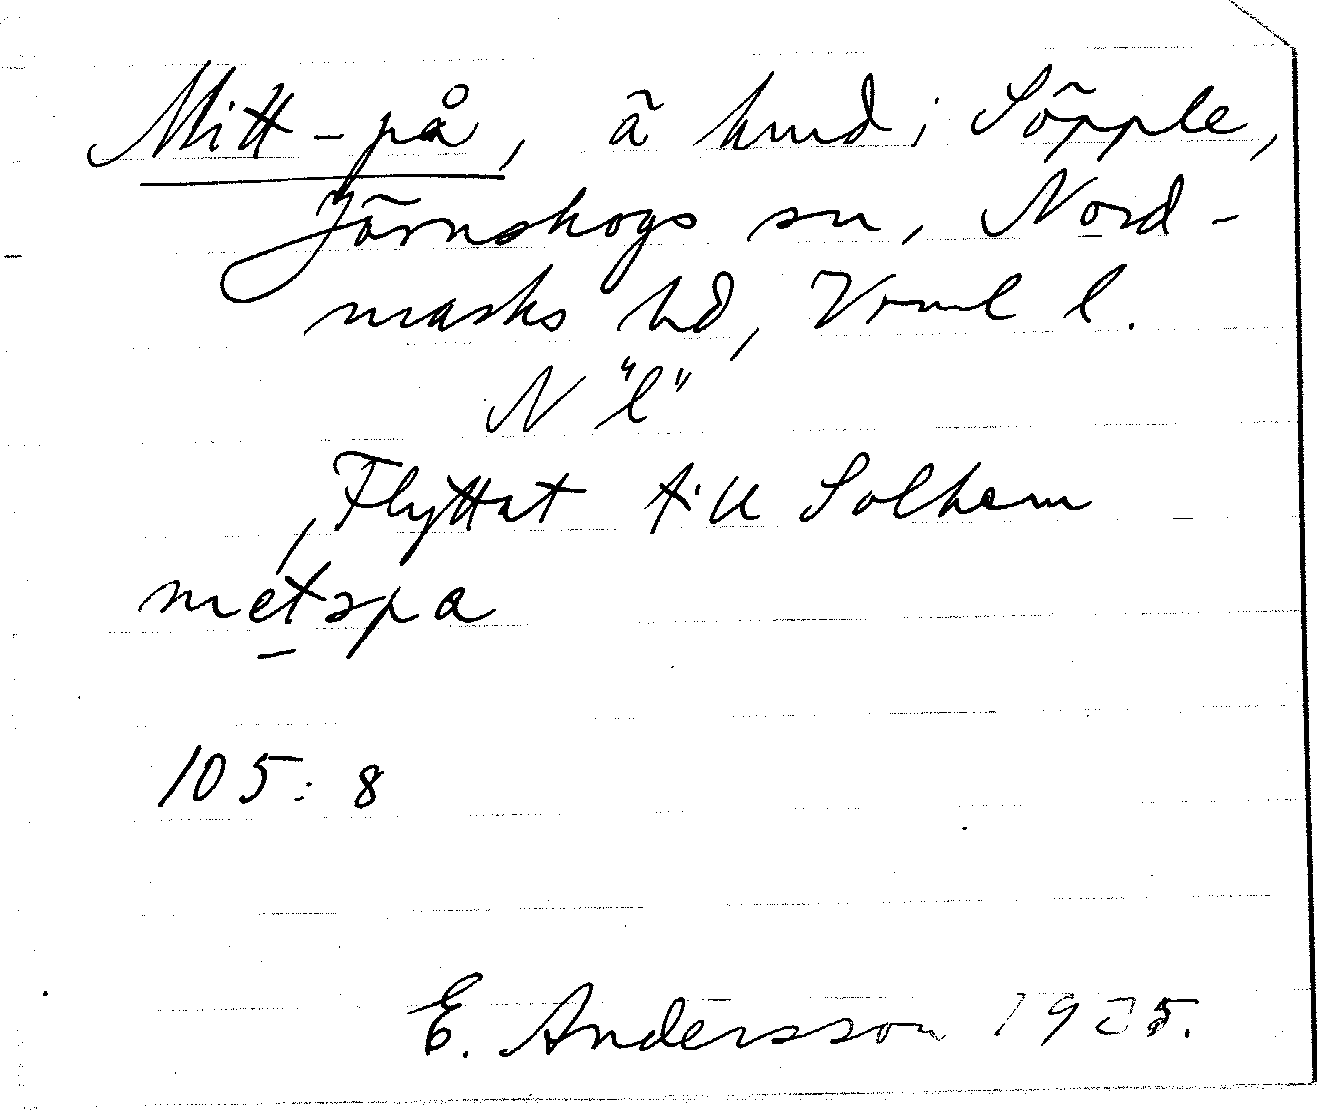 Mitt-på, ä hmd i Söpple,
Järnskogs sn, Nord-
marks hd, Vrml l.
N "l"
Flyttat till Solhem
metspa
105: 8
E. Andersson 1925.